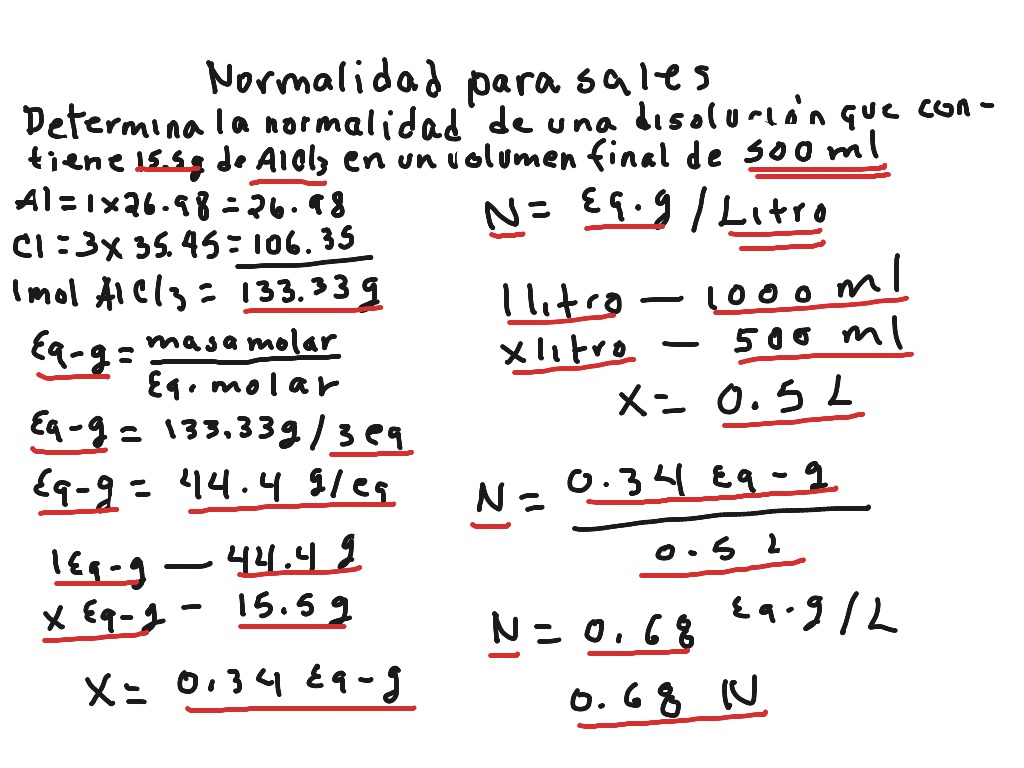 Normalidad para sales
Determina la normalidad de una disolución que con-
tiene 15.5g de AlCl3 en un volumen final de 500 ml
Al = 1 x 26.98 = 26.98
Cl = 3 x 35.45 = 106.35
1 mol AlCl3 = 133.33 g
Eq-g = masa molar / Eq. molar
Eq-g = 133.33g / 3 eq
Eq-g = 44.4 g/eq
1 Eq-g — 44.4 g
x Eq-g - 15.5 g
X = 0.34 Eq-g
N = Eq.g / Litro
1 litro — 1000 ml
x litro — 500 ml
X = 0.5 L
N = 0.34 Eq-g
0.5 L
N = 0.68 Eq.g/L
0.68 N